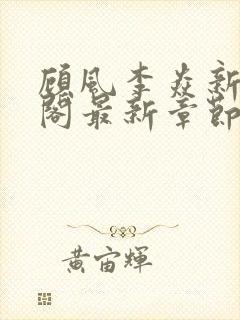 顧風李焱新
閣最新章節
黃宙輝